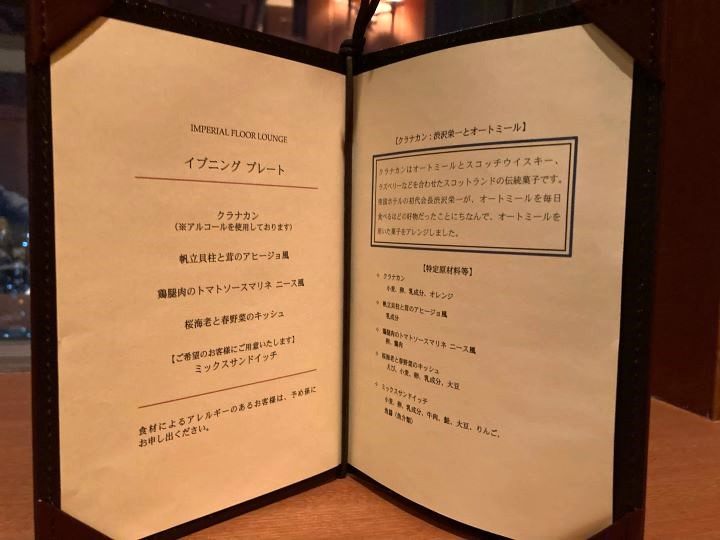 IMPERIAL FLOOR LOUNGE
イブニング プレート
クラナカン
(※アルコールを使用しております)
帆立貝柱と茸のアヒージョ風
鶏腿肉のトマトソースマリネ ニース風
桜海老と春野菜のキッシュ
【ご希望のお客様にご用意いたします】
ミックスサンドイッチ
食材によるアレルギーのあるお客様は、予め係に
お申し出ください。
【クラナカン:渋沢栄一とオートミール】
クラナカンはオートミールとスコッチウイスキー、
ラズベリーなどを合わせたスコットランドの伝統菓子です。
帝国ホテルの初代会長渋沢栄一が、オートミールを毎日
食べるほどの好物だったことにちなんで、オートミールを
用いた菓子をアレンジしました。
【特定原材料等】
クラナカン
小麦、卵、乳成分、オレンジ
帆立貝柱と茸のアヒージョ風
乳成分
鶏腿肉のトマトソースマリネ ニース風
卵、鶏肉
桜海老と春野菜のキッシュ
えび、小麦、卵、乳成分、大豆
ミックスサンドイッチ
小麦、卵、乳成分、牛肉、鮭、大豆、りんご、
魚醤(魚介類)